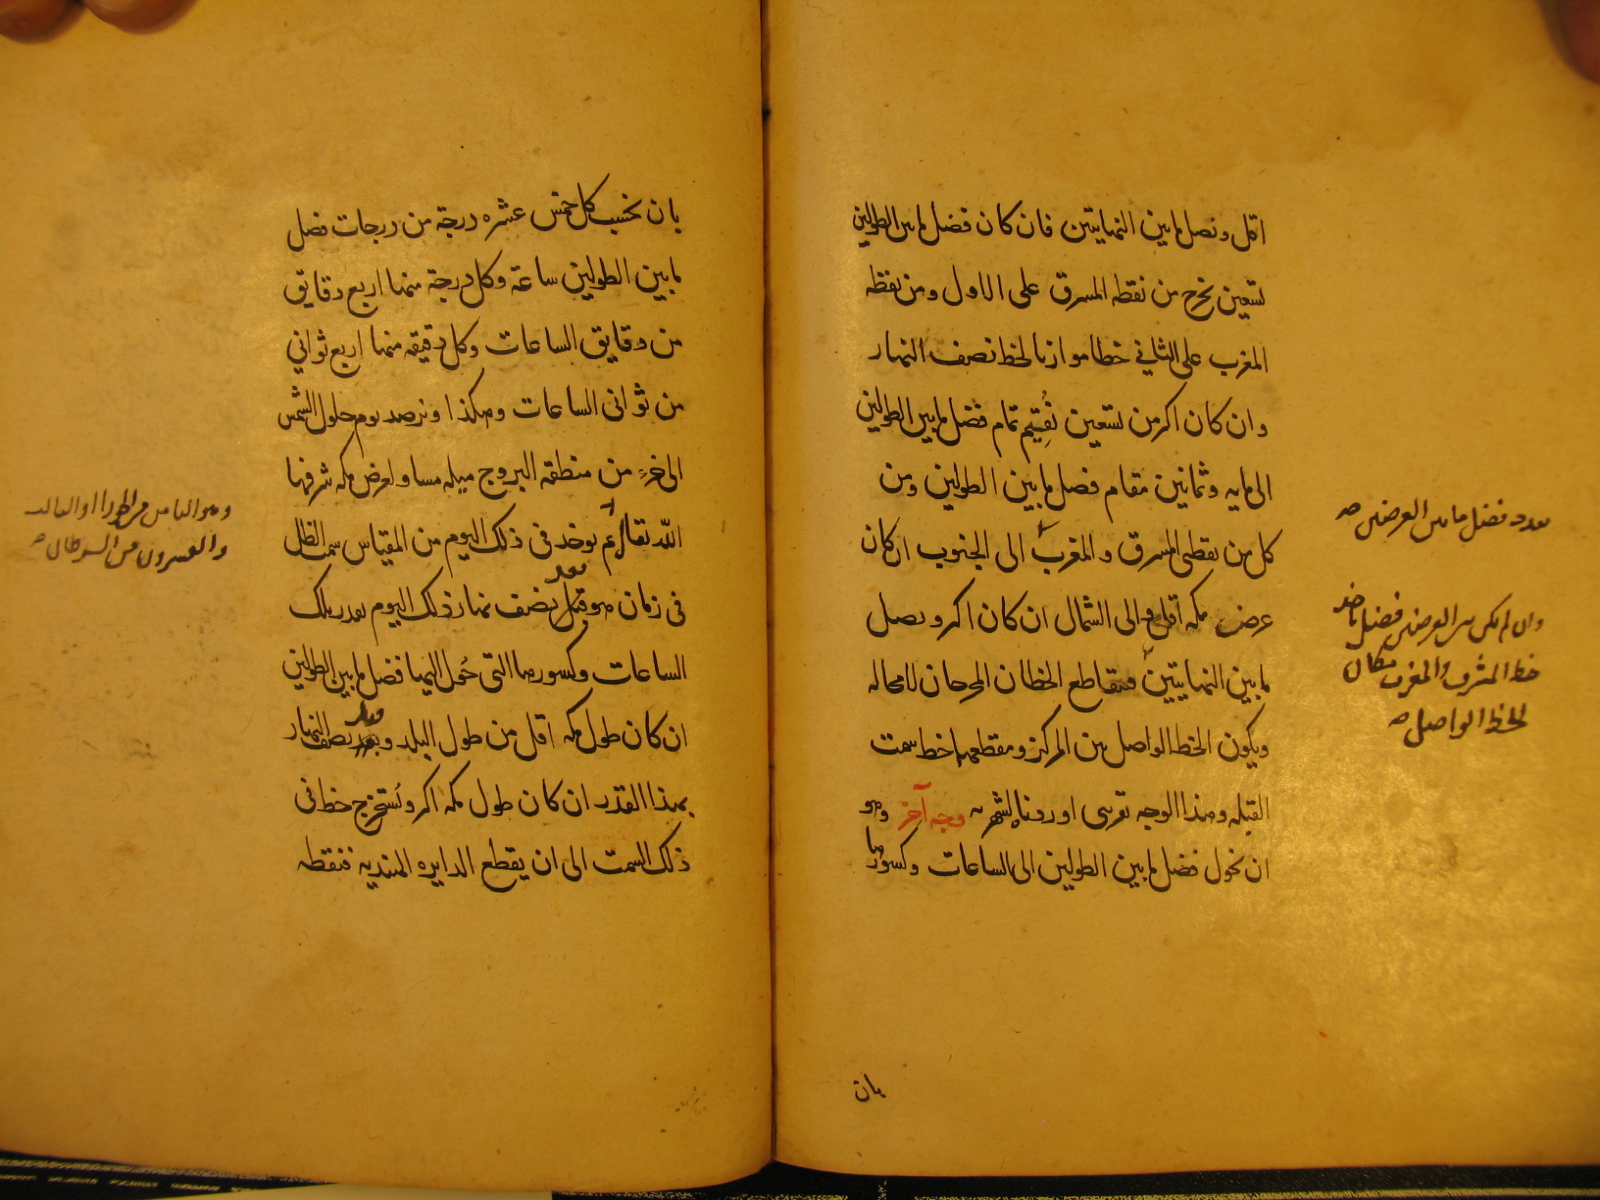 اقل ونصل ما بين النهايتين فان كان فضل ما بين الطولين
تسعين نخرج من نقطه المشرق على الاول ومن نقطه
المغرب على الثاني خطا موازيا لخط نصف النهار
وان كان اكثر من تسعين نُقيم تمام فضل ما بين الطولين
الى مايه وثمانين مقام فضل ما بين الطولين ومن
كل من نقطتى المشرق والمغرب الى الجنوب ان كان
عرض مكه اقل والى الشمال ان كان اكثر ويصل
ما بين النهايتين فيتقاطع الخطان المخرجان لا محاله
ويكون الخط الواصل بين المركز ومقطعهما خط سمت
القبله وهذا الوجه تقريبى اوردناه لشهرته وجه آخر وهو
ان نحول فضل ما بين الطولين الى الساعات وكسورها
بعدد فضل ما بين العرضين صح
وان لم يكن بين العرضين فضل ناخذ
خط المشرق والمغرب مكان
الخط الواصل صح
بان
بان نحسب كل خمس عشره درجة من درجات فضل
ما بين الطولين ساعة وكل درجة منها اربع دقايق
من دقايق الساعات وكل دقيقه منها اربع ثواني
من ثوانى الساعات وهكذا ونرصد يوم حلول الشمس
الى جزءٍ من منطقه البروج ميله مساو لعرض مكه شرفها
الله تعالى ثم يوخذ فى ذلك اليوم من المقياس سمت الظل
فى زمان هو قبل نصف نهار ذلك اليوم بقدر تلك
بعد
الساعات وكسورها التى حُول اليها فضل ما بين الطولين
ان كان طول مكه اقل من طول البلد وبعد نصف النهار
وقبل
بهذا القدر ان كان طول مكه اكثر ونُستخرج خط فى
ذلك السمت الى ان يقطع الدايره الهنديه فنقطه
وهو الثامن من الجوزا او الثالث
والعشرون من السرطان صح